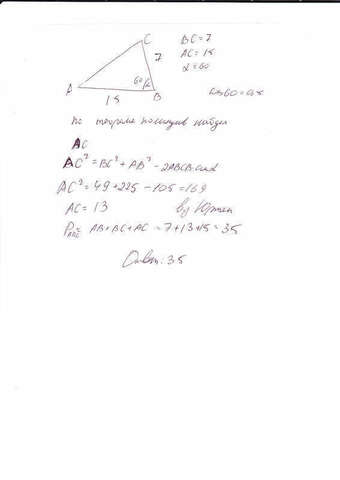 C
BC=7
7
AC=15
α=60
A
60
α
B
15
cos60=0,5
по теореме косинусов найдем
AC
AC²=BC²+AB²-2ABCB·cosα
AC²=49+225-105=169
AC=13
by Юрген
P ABC= AB+BC+AC=7+13+15=35
Ответ: 35